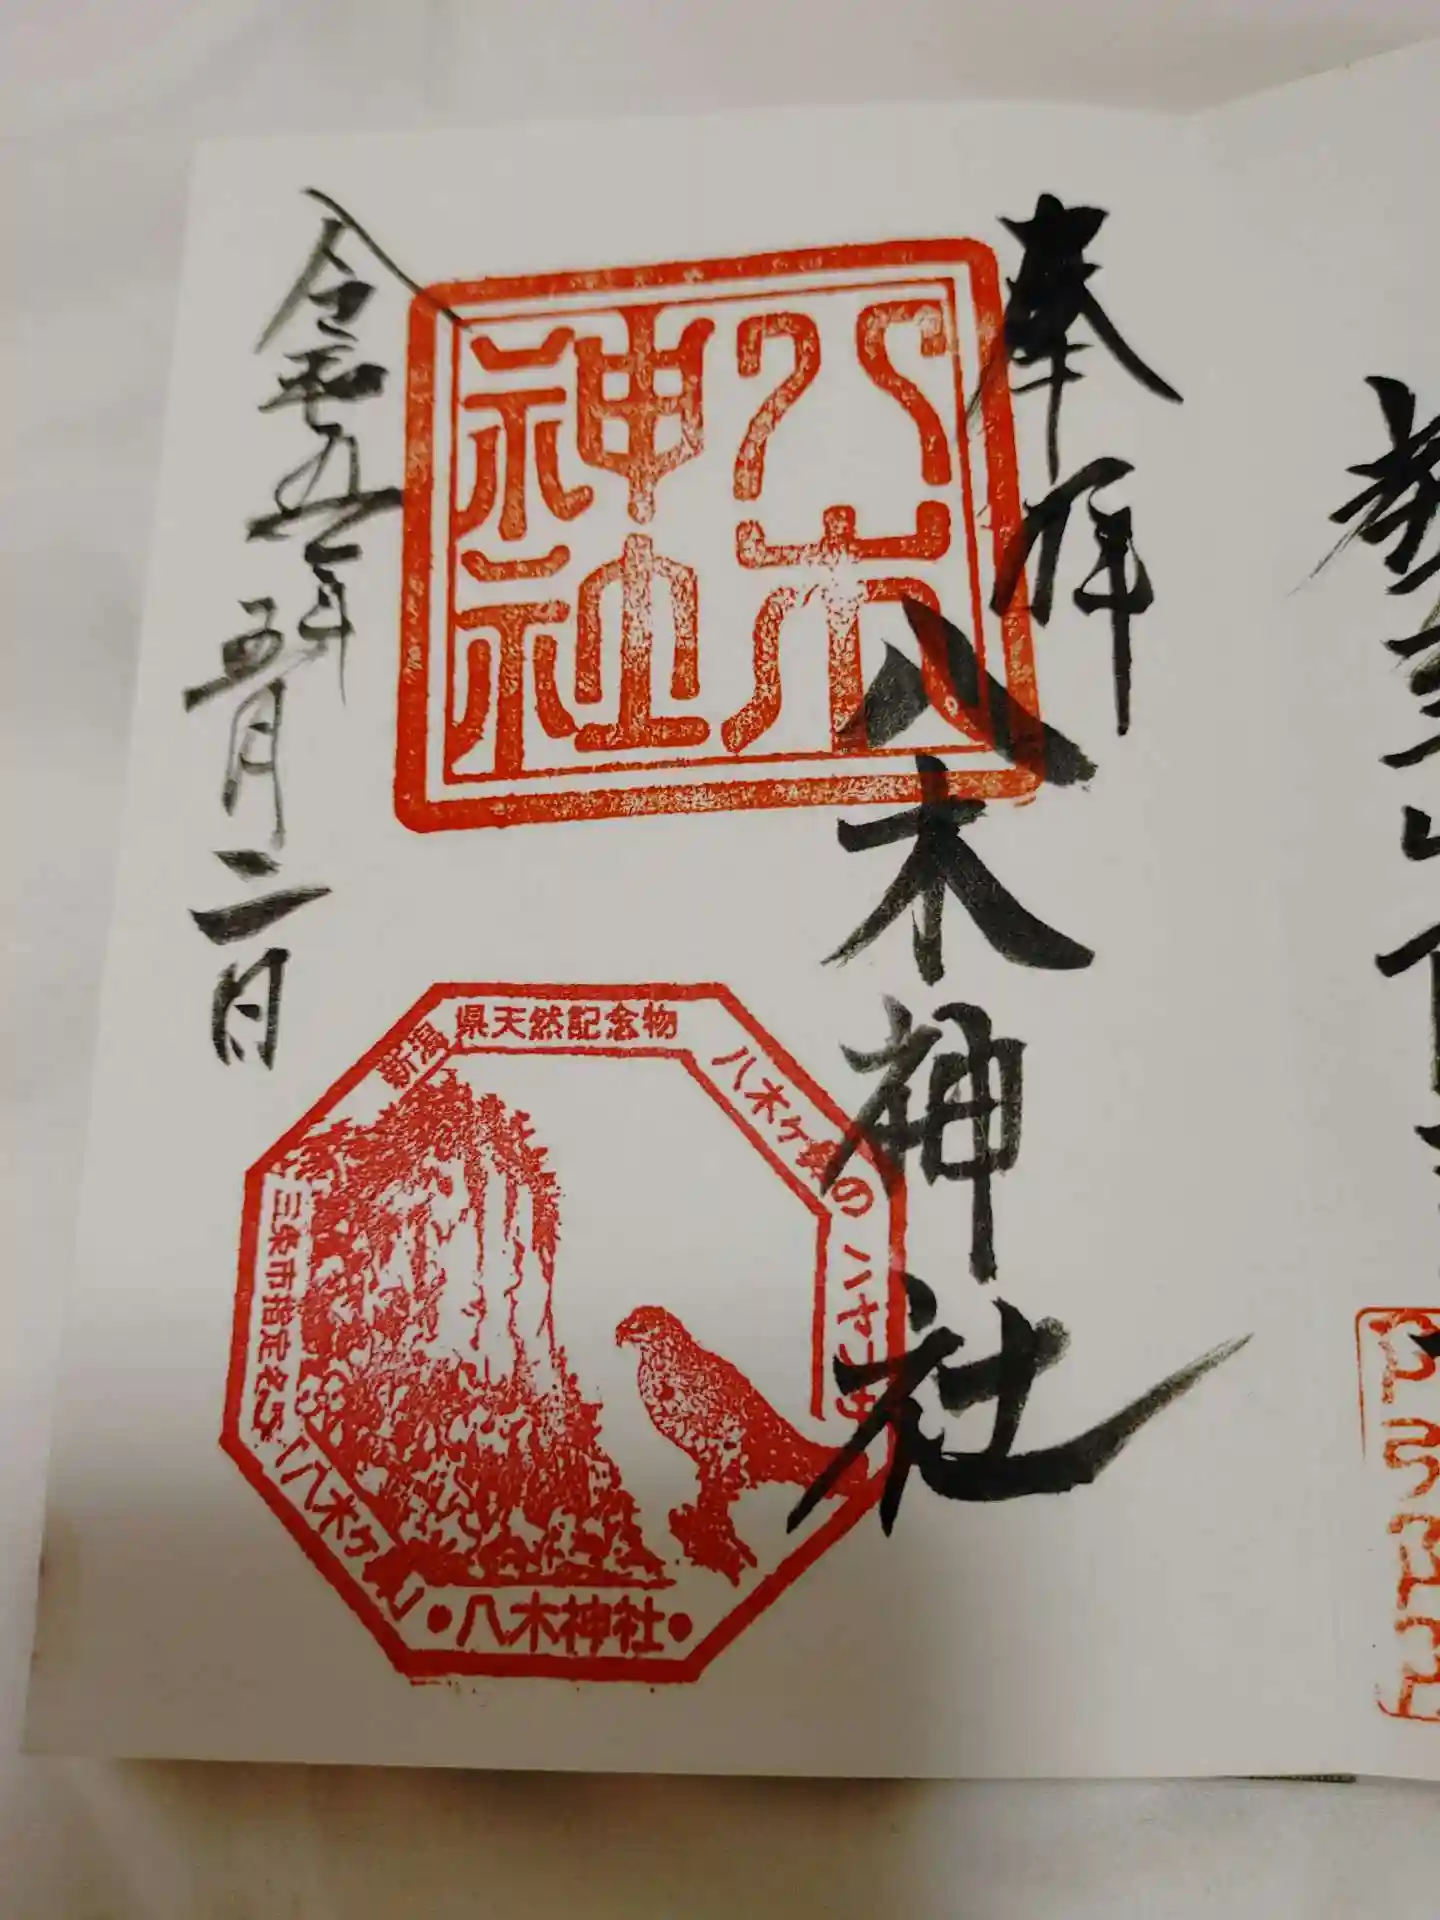 奉拝
八木神社
八木神社
令和五年五月二日
新潟県天然記念物
八木ヶ鼻の
三条市指定名
八木ヶ鼻
・八木神社・